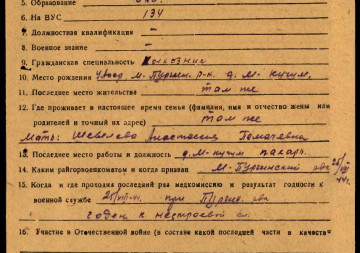 5. Образование
6. На ВУС 134
7. Должностная квалификация –
8. Военное звание –
9. Гражданская специальность Колхозник
10. Место рождения М-Пургин. р-н. д. М-Кузим,
11. Последнее место жительства там же
12. Где проживает в настоящее время семья (фамилия, имя и отчество жены или
родителей и точный их адрес) там же
Мать: Анастасия
13. Последнее место работы и должность д. М-Кузим пахарь.
14. Каким райгорвоенкоматом и когда призван М-Пургинский рвк
15. Когда и где проходил последний раз медкомиссию и результат годности к
военной службе 25/VIII-44г. при Пургин. рвк
годен к нестроевой сл.
16. Участие в Отечественной войне (в составе какой последней части в качеств